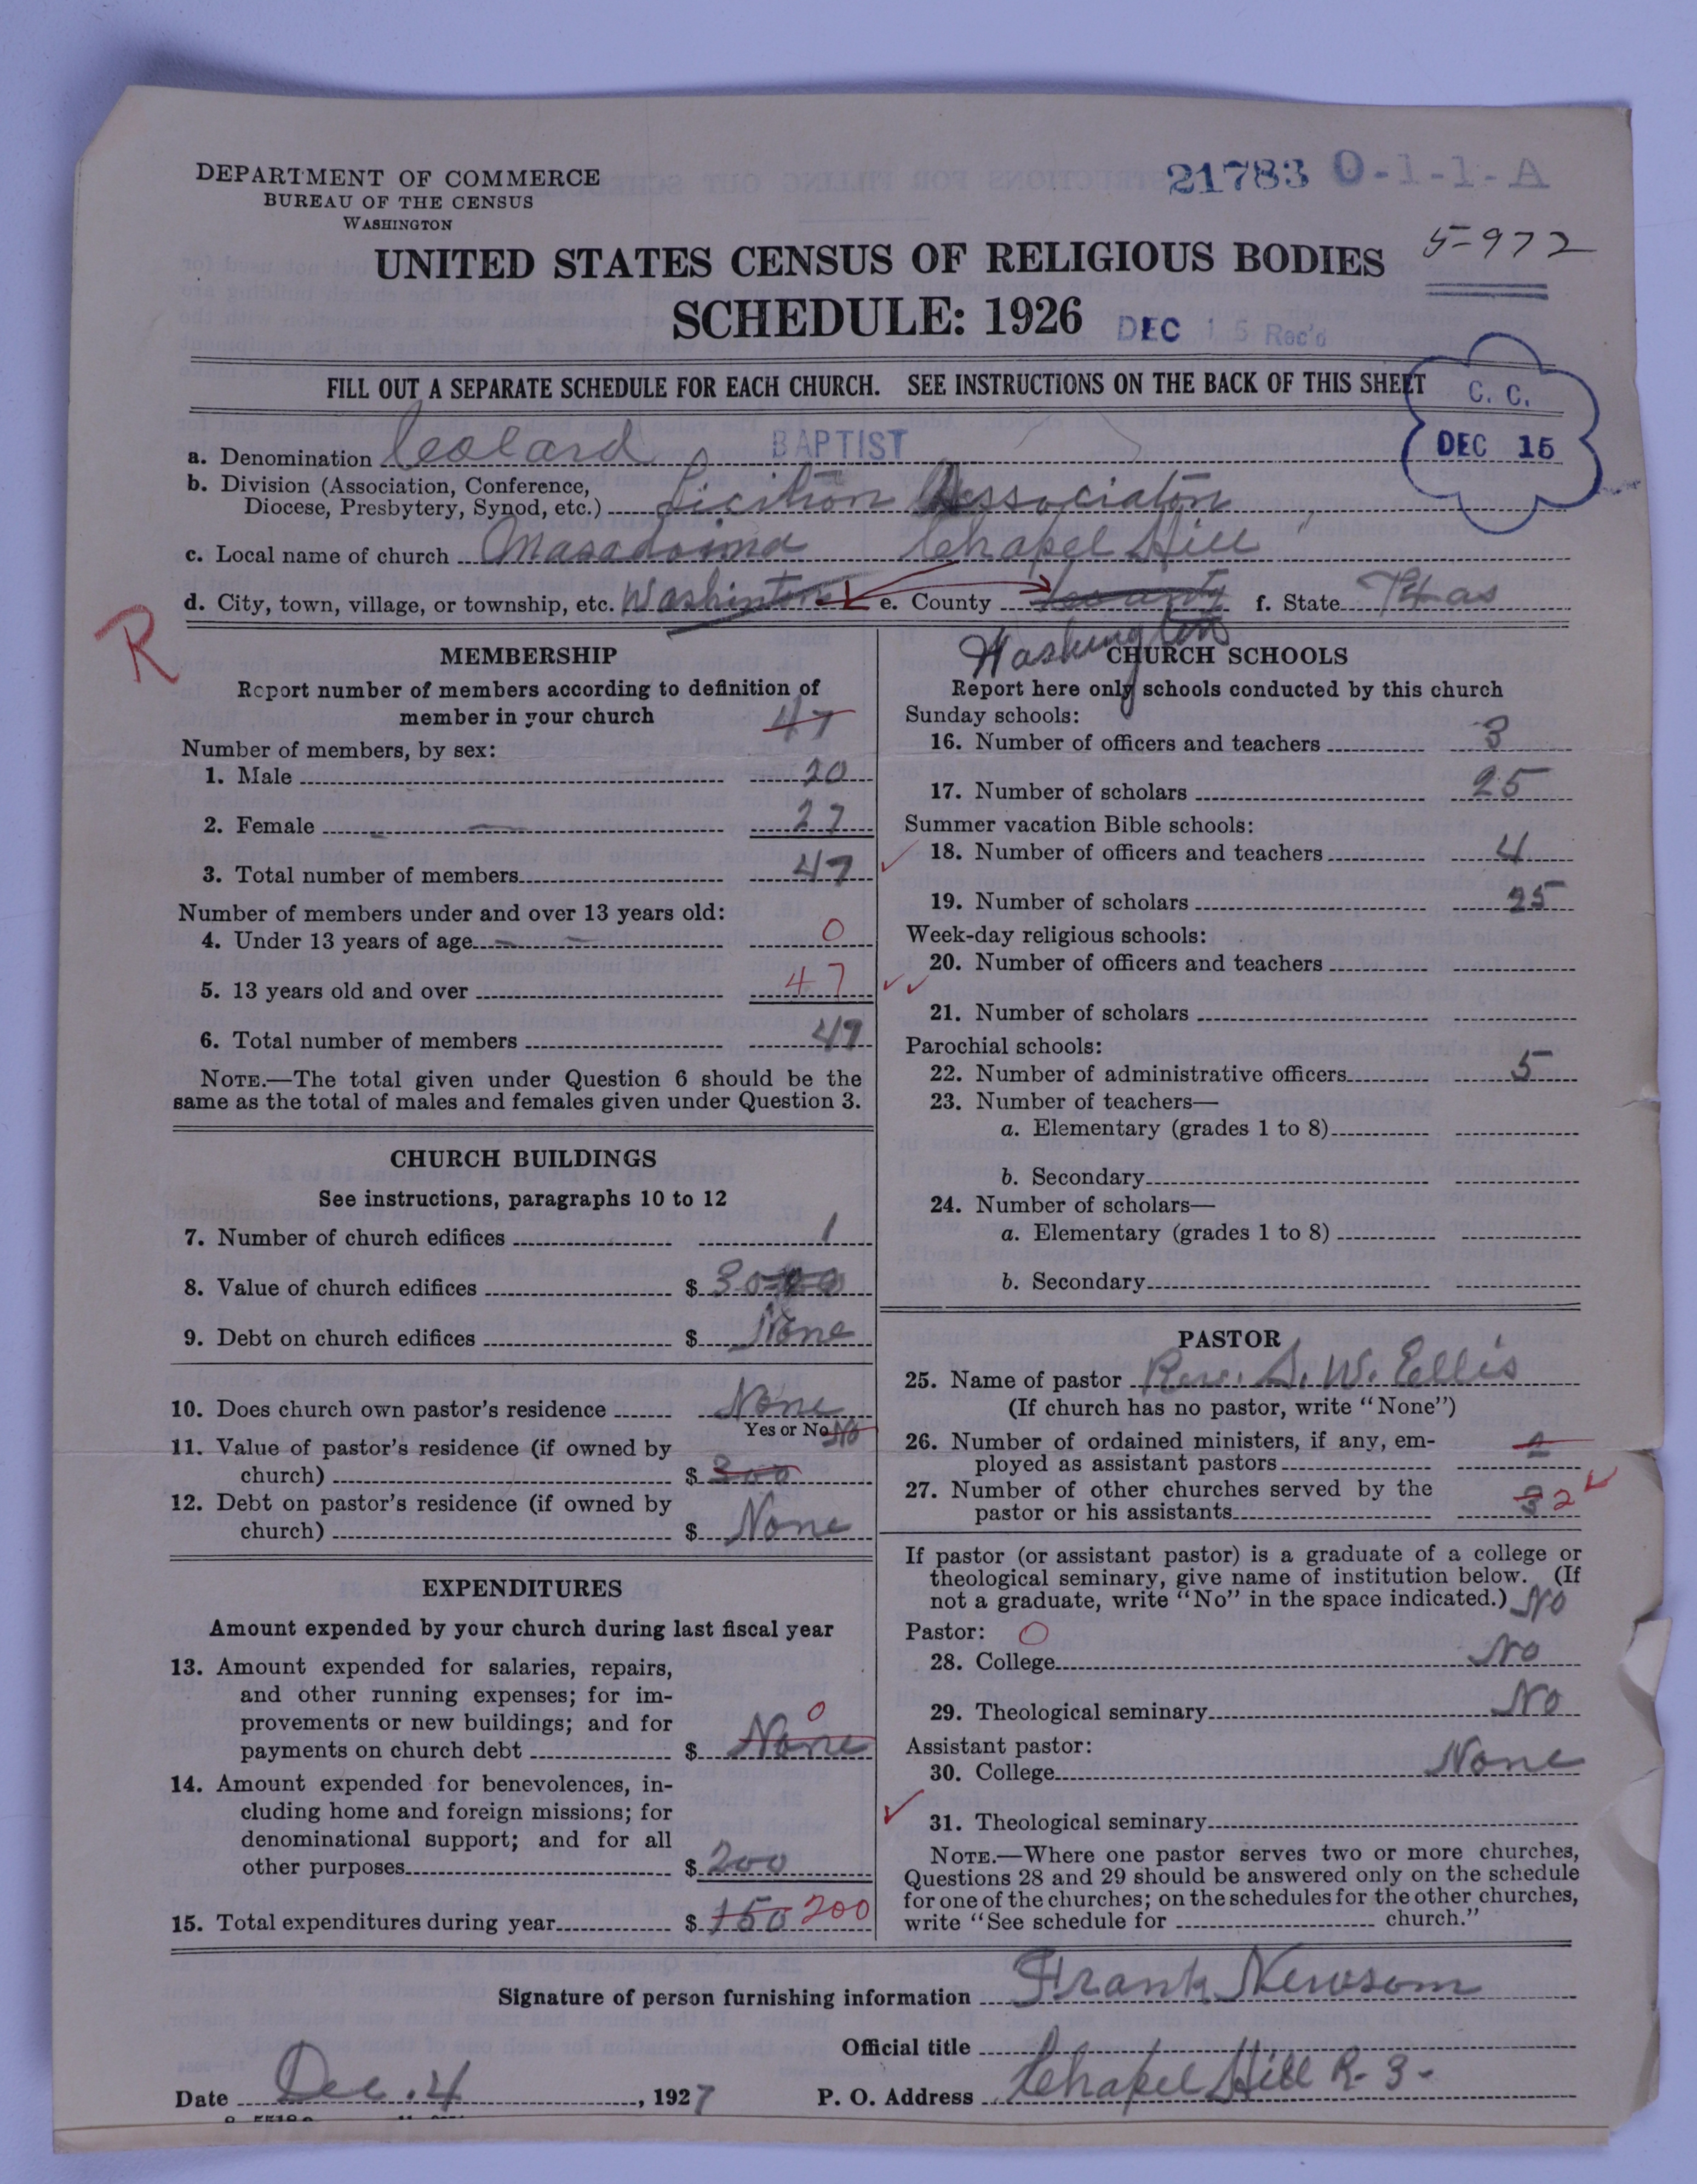 DEPARTMENT OF COMMERCE
BUREAU OF THE CENSUS
WASHINGTON
21783 0-1-1-A
UNITED STATES CENSUS OF RELIGIOUS BODIES
5-972
SCHEDULE: 1926
DEC 15 Rec'd
FILL OUT A SEPARATE SCHEDULE FOR EACH CHURCH. SEE INSTRUCTIONS ON THE BACK OF THIS SHEET
C. C.
DEC 15
a. Denomination Colard BAPTIST
b. Division (Association, Conference,
Diocese, Presbytery, Synod, etc.) Association
c. Local name of church Chapel Hill
d. City, town, village, or township, etc. Washinton e. County County f. State Texas
Washington
R
MEMBERSHIP
Report number of members according to definition of
member in your church
47
Number of members, by sex:
1. Male 20
2. Female 27
3. Total number of members 47
Number of members under and over 13 years old:
4. Under 13 years of age 0
5. 13 years old and over 47
6. Total number of members 47
NOTE.—The total given under Question 6 should be the
same as the total of males and females given under Question 3.
CHURCH BUILDINGS
See instructions, paragraphs 10 to 12
7. Number of church edifices 1
8. Value of church edifices $
9. Debt on church edifices $ None
10. Does church own pastor's residence None
Yes or No No
11. Value of pastor's residence (if owned by
church) $ 300
12. Debt on pastor's residence (if owned by
church) $ None
EXPENDITURES
Amount expended by your church during last fiscal year
13. Amount expended for salaries, repairs,
and other running expenses; for im-
provements or new buildings; and for
payments on church debt $ None 0
14. Amount expended for benevolences, in-
cluding home and foreign missions; for
denominational support; and for all
other purposes $ 200
15. Total expenditures during year $ 150 200
CHURCH SCHOOLS
Report here only schools conducted by this church
Sunday schools:
16. Number of officers and teachers 3
17. Number of scholars 25
Summer vacation Bible schools:
18. Number of officers and teachers 4
19. Number of scholars 25
Week-day religious schools:
20. Number of officers and teachers
21. Number of scholars
Parochial schools:
22. Number of administrative officers 5
23. Number of teachers—
a. Elementary (grades 1 to 8)
b. Secondary
24. Number of scholars—
a. Elementary (grades 1 to 8)
b. Secondary
PASTOR
25. Name of pastor Rev. S. W. Ellis
(If church has no pastor, write "None")
26. Number of ordained ministers, if any, em-
ployed as assistant pastors
27. Number of other churches served by the
pastor or his assistants 3 2
If pastor (or assistant pastor) is a graduate of a college or
theological seminary, give name of institution below. (If
not a graduate, write "No" in the space indicated.) No
Pastor: 0
28. College No
29. Theological seminary No
Assistant pastor:
30. College None
31. Theological seminary
NOTE.—Where one pastor serves two or more churches,
Questions 28 and 29 should be answered only on the schedule
for one of the churches; on the schedules for the other churches,
write "See schedule for church."
Signature of person furnishing information Frank Newsom
Official title
Date Dec. 4, 1927 P. O. Address Chapel Hill R-3-